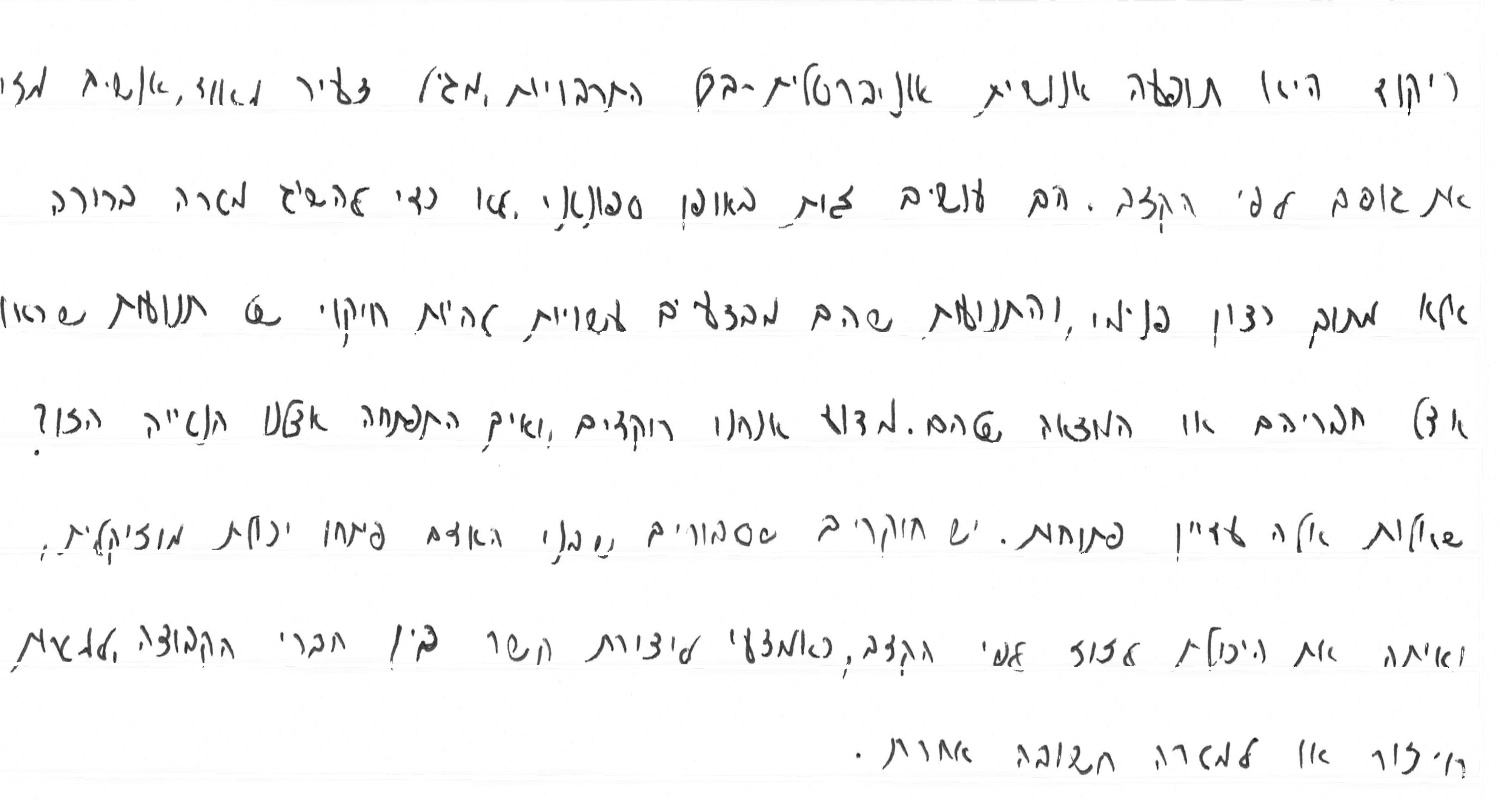 ריקוד היא תופעה אנושית אוניברסלית-בכל התרבויות, מגיל צעיר מאוד, אנשים מזי
את גופם לפי הקצב. הם עושים זאת באופן ספונטני, לאו כדי להשיג מטרה ברורה
אלא מתוך רצון פנימי, והתנועות שהם מבצעים עשויות להיות חיקוי של תנועות שראו
אצל חבריהם או המצאה שלהם. מדוע אנחנו רוקדים, ואיך התפתחה אצלנו הנטייה הזו?
שאלות אלה עדיין פתוחות. יש חוקרים שסבורים שבני האדם פיתחו יכולת מוזיקלית,
ואיתה את היכולת לזוז לפי הקצב, כאמצעי ליצירת קשר בין חברי הקבוצה, למציאת
חיזור או למטרה חשובה אחרת.